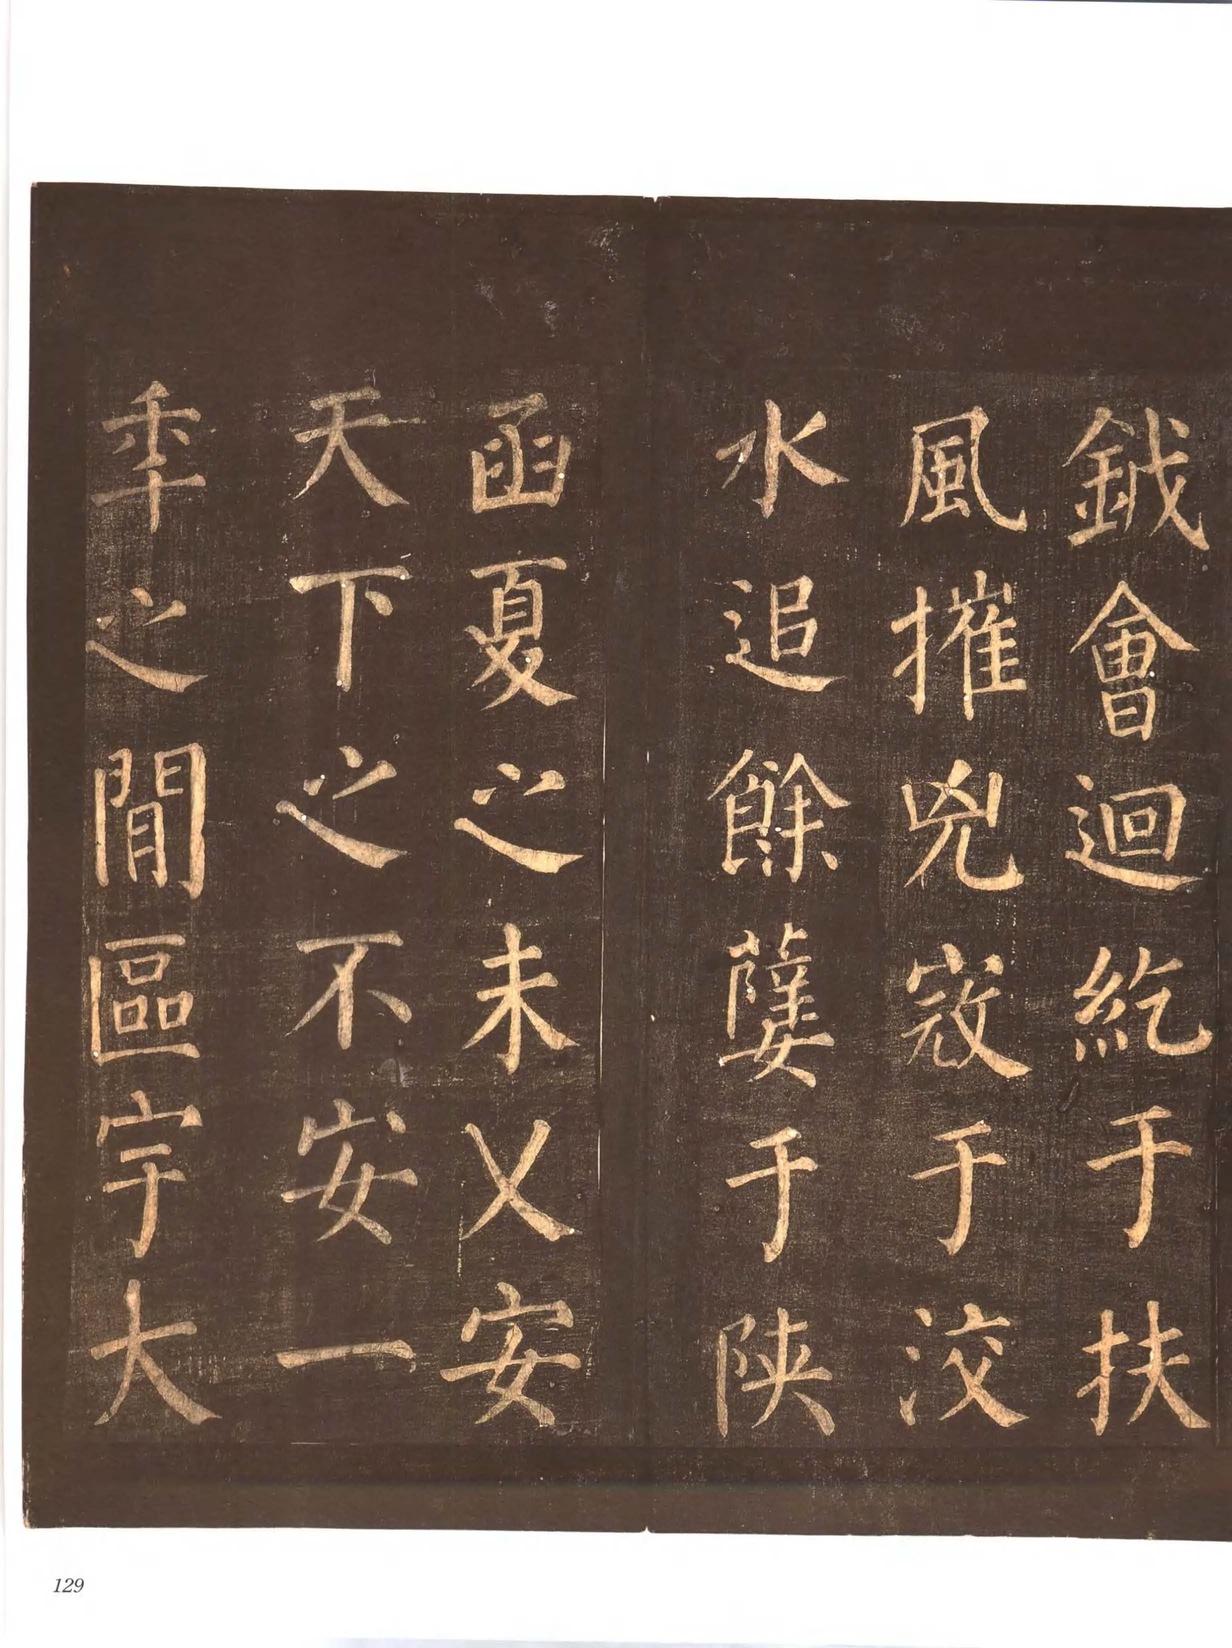 鉞會迴紇于扶
風摧兇寇于洨
水追餘孽于陝
函夏之未乂安
天下之不安一
秊之閒區宇大
129